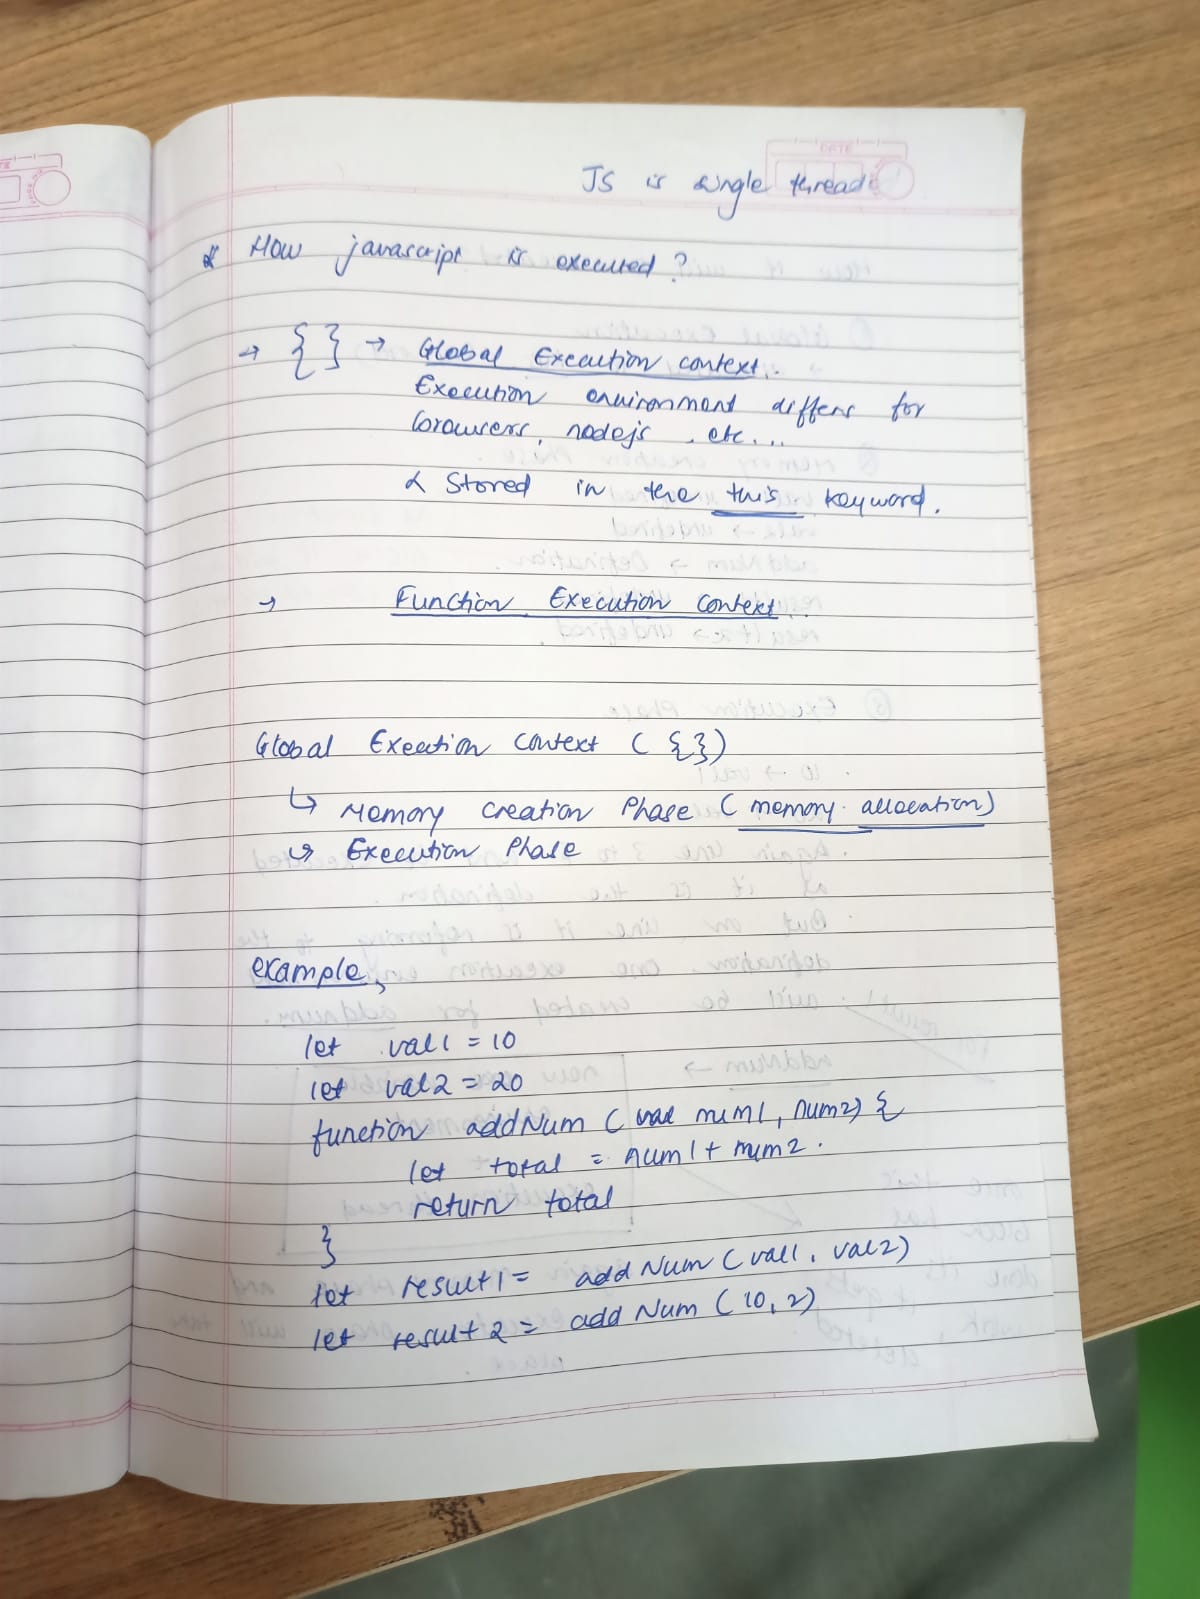 DATE
JS is single thread
* How javascript is executed?
→ { } → Global Execution context.
Execution environment differs for
browsers, nodejs, etc...
& Stored in the this keyword.
→ Function Execution Context.
Global Execution Context ( {})
↳ Memory Creation Phase (memory allocation)
↳ Execution Phase
example,
let val1 = 10
let val2 = 20
function addNum ( num1, num2) {
let total = num1 + num2
return total
}
let result1 = addNum (val1, val2)
let result2 = addNum (10, 2)